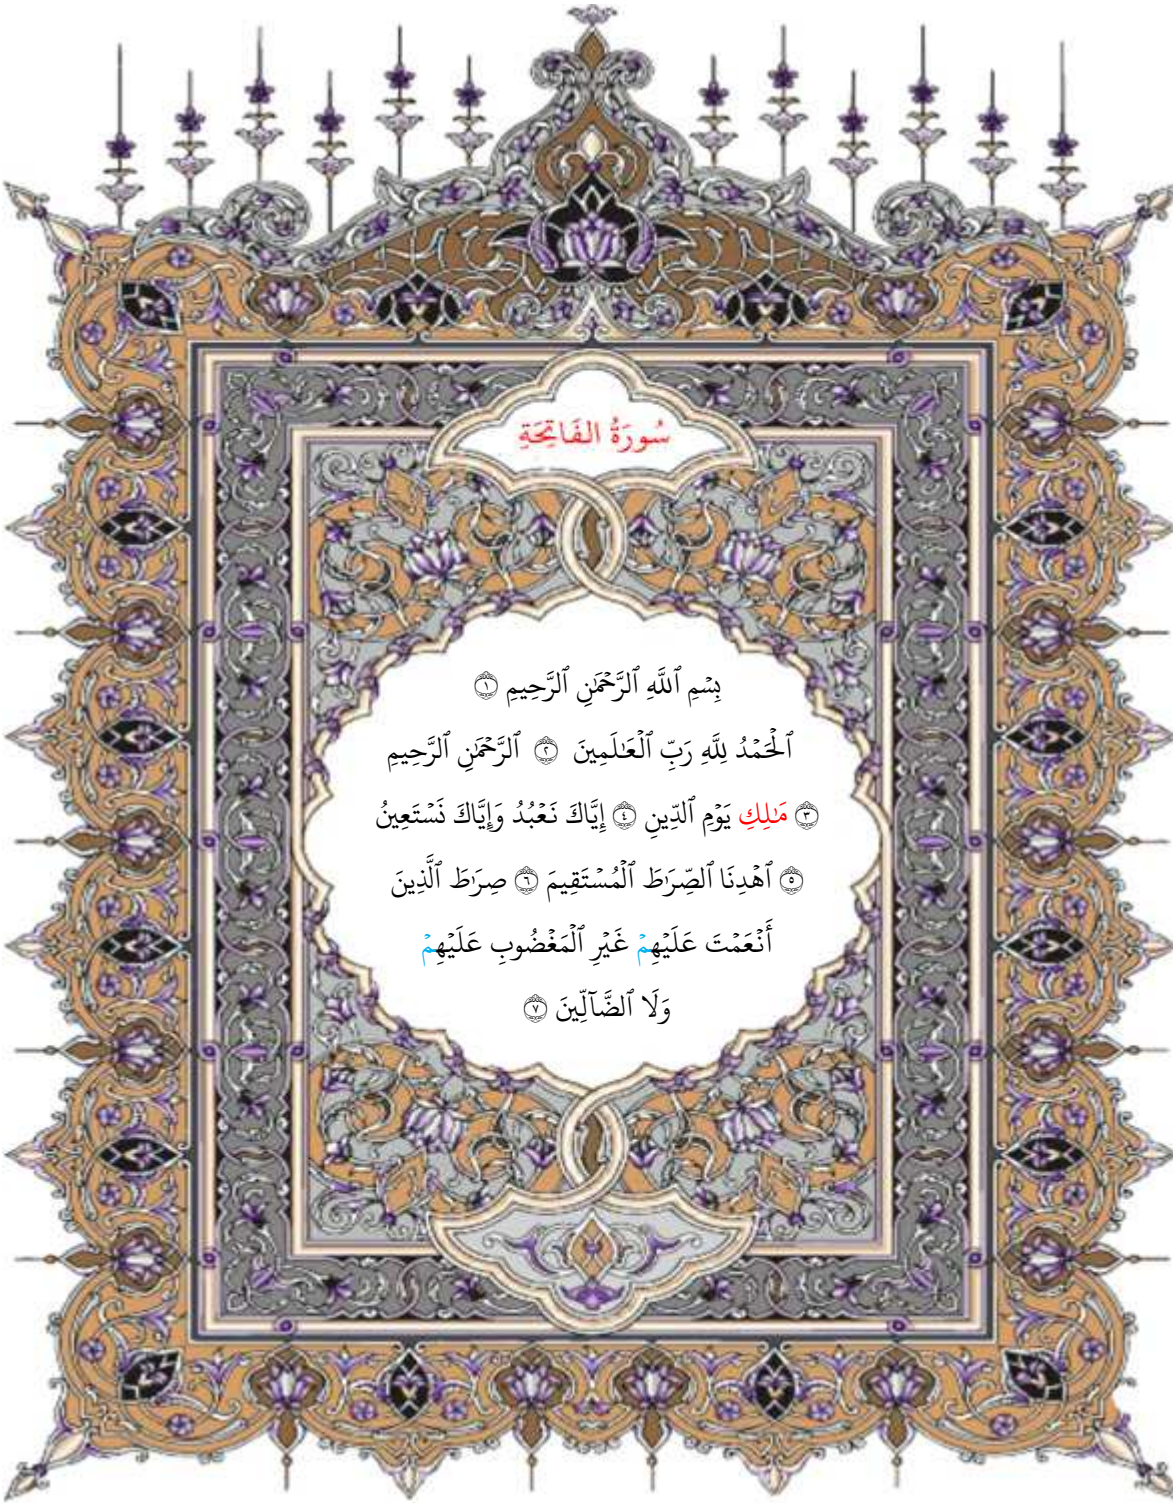 سُورَةُ الفَاتِحَةِ
بِسۡمِ ٱللَّهِ ٱلرَّحۡمَٰنِ ٱلرَّحِيمِ ۝١
ٱلۡحَمۡدُ لِلَّهِ رَبِّ ٱلۡعَٰلَمِينَ ۝٢ ٱلرَّحۡمَٰنِ ٱلرَّحِيمِ
۝٣ مَٰلِكِ يَوۡمِ ٱلدِّينِ ۝٤ إِيَّاكَ نَعۡبُدُ وَإِيَّاكَ نَسۡتَعِينُ
۝٥ ٱهۡدِنَا ٱلصِّرَٰطَ ٱلۡمُسۡتَقِيمَ ۝٦ صِرَٰطَ ٱلَّذِينَ
أَنۡعَمۡتَ عَلَيۡهِمۡ غَيۡرِ ٱلۡمَغۡضُوبِ عَلَيۡهِمۡ
وَلَا ٱلضَّآلِّينَ ۝٧